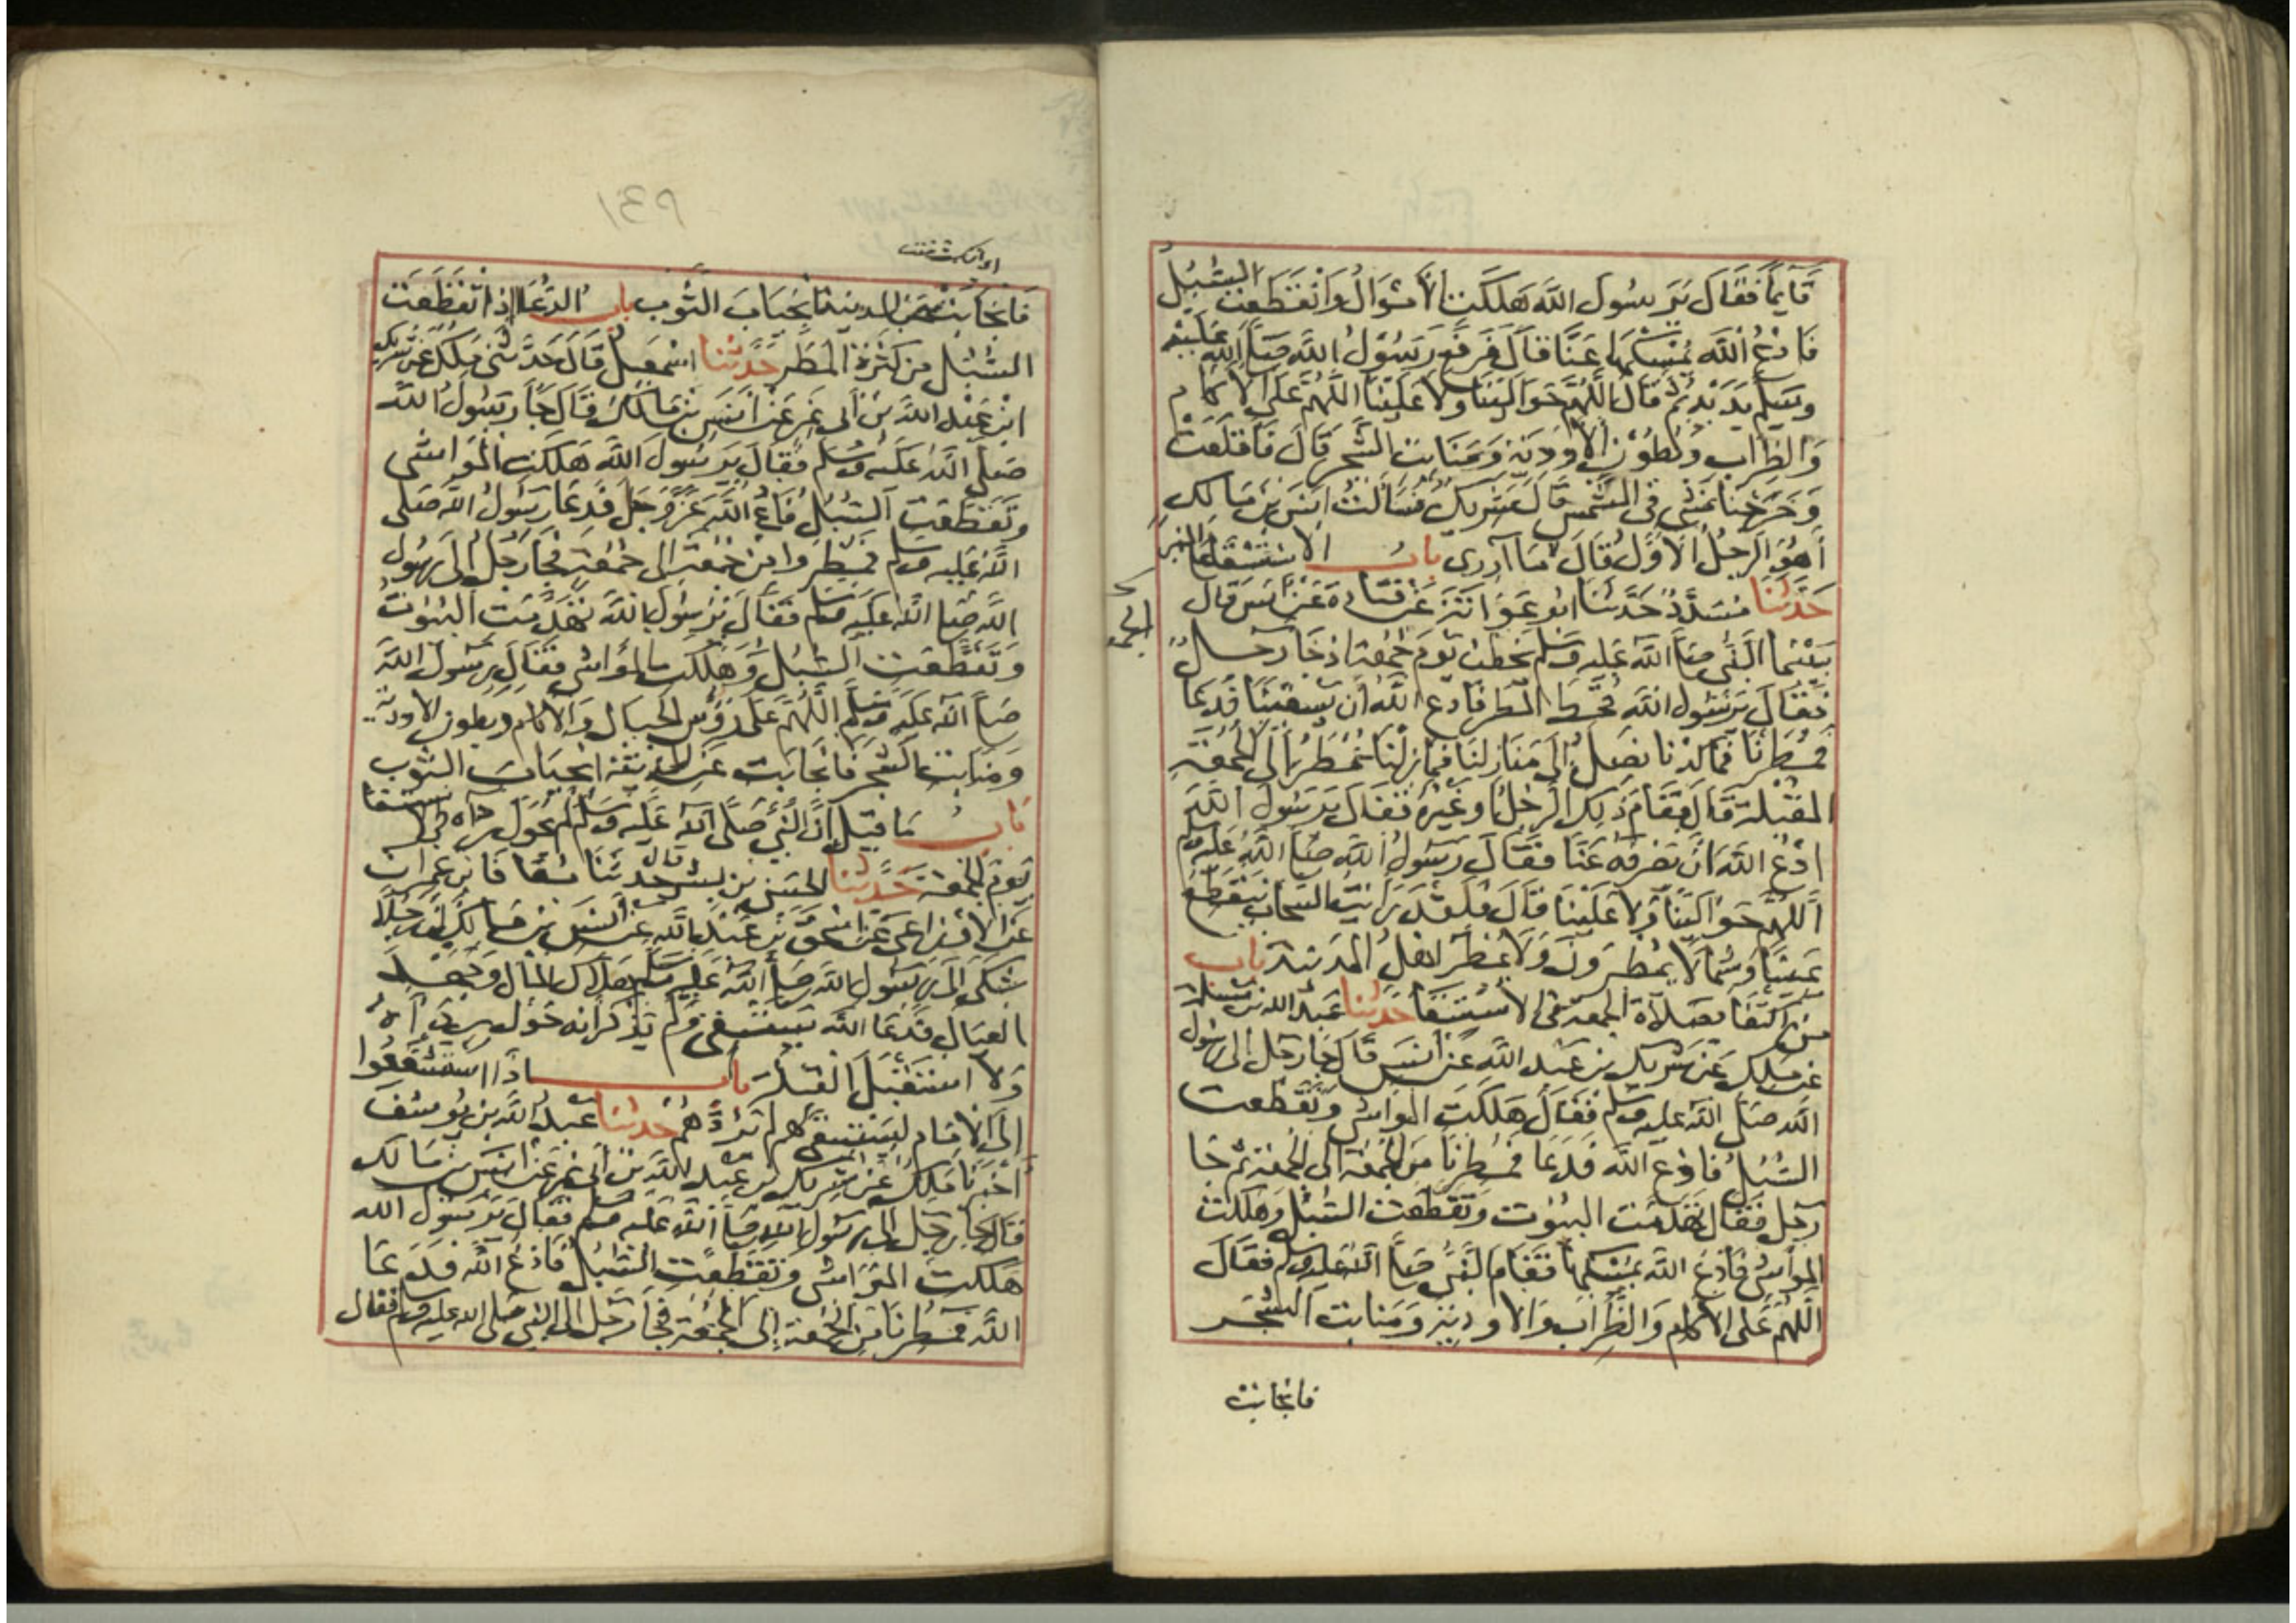 قَائِمًا فَقَالَ يَرَسُولَ اللَّهِ هَلَكَتِ الْأَمْوَالُ وَانْقَطَعَتِ السُّبُلُ
فَادْعُ اللَّهَ يُمْسِكْهَا عَنَّا قَالَ فَرَفَعَ رَسُولُ اللَّهِ صَلَّى اللَّهُ عَلَيْهِ
وَسَلَّمَ يَدَيْهِ ثُمَّ قَالَ اللَّهُمَّ حَوَالَيْنَا وَلَا عَلَيْنَا اللَّهُمَّ عَلَى الْآكَامِ
وَالظِّرَابِ وَبُطُونِ الْأَوْدِيَةِ وَمَنَابِتِ الشَّجَرِ قَالَ فَأَقْلَعَتْ
وَخَرَجْنَا نَمْشِي فِي الشَّمْسِ قَالَ شَرِيكٌ فَسَأَلْتُ أَنَسَ بْنَ مَالِكٍ
أَهُوَ الرَّجُلُ الْأَوَّلُ قَالَ مَا أَدْرِي بَابُ الِاسْتِسْقَا عَلَى الْمِنْبَرِ
حَدَّثَنَا مُسَدَّدٌ حَدَّثَنَا أَبُو عَوَانَةَ عَنْ قَتَادَةَ عَنْ أَنَسٍ قَالَ
بَيْنَمَا النَّبِيُّ صَلَّى اللَّهُ عَلَيْهِ وَسَلَّمَ يَخْطُبُ يَوْمَ جُمُعَةٍ إِذْ جَا رَجُلٌ
فَقَالَ يَرَسُولَ اللَّهِ قُحِطَ الْمَطَرُ فَادْعُ اللَّهَ أَنْ يَسْقِيَنَا فَدَعَا
فَمُطِرْنَا فَمَا كِدْنَا نَصِلُ إِلَى مَنَازِلِنَا فَمَا زِلْنَا نُمْطَرُ إِلَى الْجُمُعَةِ
الْمُقْبِلَةِ قَالَ فَقَامَ ذَلِكَ الرَّجُلُ أَوْ غَيْرُهُ فَقَالَ يَرَسُولَ اللَّهِ
ادْعُ اللَّهَ أَنْ يَصْرِفَهُ عَنَّا فَقَالَ رَسُولُ اللَّهِ صَلَّى اللَّهُ عَلَيْهِ وَسَلَّمَ
اللَّهُمَّ حَوَالَيْنَا وَلَا عَلَيْنَا قَالَ فَلَقَدْ رَأَيْتُ السَّحَابَ يَتَقَطَّعُ
يَمِينًا وَشِمَالًا يُمْطَرُونَ وَلَا يُمْطَرُ أَهْلُ الْمَدِينَةِ بَابُ
مَنِ اكْتَفَا بِصَلَاةِ الْجُمُعَةِ فِي الِاسْتِسْقَا حَدَّثَنَا عَبْدُ اللَّهِ بْنُ مَسْلَمَةَ
عَنْ مَلِكٍ عَنْ شَرِيكِ بْنِ عَبْدِ اللَّهِ عَنْ أَنَسٍ قَالَ جَا رَجُلٌ إِلَى رَسُولِ
اللَّهِ صَلَّى اللَّهُ عَلَيْهِ وَسَلَّمَ فَقَالَ هَلَكَتِ الْمَوَاشِي وَتَقَطَّعَتِ
السُّبُلُ فَادْعُ اللَّهَ فَدَعَا فَمُطِرْنَا مِنَ الْجُمُعَةِ إِلَى الْجُمُعَةِ ثُمَّ جَا
رَجُلٌ فَقَالَ تَهَدَّمَتِ الْبُيُوتُ وَتَقَطَّعَتِ السُّبُلُ وَهَلَكَتِ
الْمَوَاشِي فَادْعُ اللَّهَ يُمْسِكْهَا فَقَامَ النَّبِيُّ صَلَّى اللَّهُ عَلَيْهِ وَسَلَّمَ فَقَالَ
اللَّهُمَّ عَلَى الْآكَامِ وَالظِّرَابِ وَالْأَوْدِيَةِ وَمَنَابِتِ الشَّجَرِ
فانجابت
فَانْجَابَتْ عَنِ الْمَدِينَةِ انْجِيَابَ الثَّوْبِ بَابُ الدُّعَا إِذَا تَقَطَّعَتِ
السُّبُلُ مِنْ كَثْرَةِ الْمَطَرِ حَدَّثَنَا إِسْمَعِيلُ قَالَ حَدَّثَنِي مَلِكٌ عَنْ شَرِيكِ
ابْنِ عَبْدِ اللَّهِ بْنِ أَبِي نَمِرٍ عَنْ أَنَسِ بْنِ مَالِكٍ قَالَ جَا رَسُولَ اللَّهِ
صَلَّى اللَّهُ عَلَيْهِ وَسَلَّمَ فَقَالَ يَرَسُولَ اللَّهِ هَلَكَتِ الْمَوَاشِي
وَتَقَطَّعَتِ السُّبُلُ فَادْعُ اللَّهَ عَزَّ وَجَلَّ فَدَعَا رَسُولُ اللَّهِ صَلَّى
اللَّهُ عَلَيْهِ وَسَلَّمَ فَمُطِرُوا مِنْ جُمُعَةٍ إِلَى جُمُعَةٍ فَجَا رَجُلٌ إِلَى رَسُولِ
اللَّهِ صَلَّى اللَّهُ عَلَيْهِ وَسَلَّمَ فَقَالَ يَرَسُولَ اللَّهِ تَهَدَّمَتِ الْبُيُوتُ
وَتَقَطَّعَتِ السُّبُلُ وَهَلَكَتِ الْمَوَاشِي فَقَالَ رَسُولُ اللَّهِ
صَلَّى اللَّهُ عَلَيْهِ وَسَلَّمَ اللَّهُمَّ عَلَى رُؤُسِ الْجِبَالِ وَالْآكَامِ وَبُطُونِ الْأَوْدِيَةِ
وَمَنَابِتِ الشَّجَرِ فَانْجَابَتْ عَنِ الْمَدِينَةِ انْجِيَابَ الثَّوْبِ
بَابُ مَا قِيلَ إِنَّ النَّبِيَّ صَلَّى اللَّهُ عَلَيْهِ وَسَلَّمَ لَمْ يُحَوِّلْ رداه في الاستسقا
يَوْمَ الْجُمُعَةِ حَدَّثَنَا الْحَسَنُ بْنُ بِشْرٍ قال حَدَّثَنَا مُعَافَا بْنُ عِمْرَانَ
عَنِ الْأَوْزَاعِيِّ عَنْ إِسْحَقَ بْنِ عَبْدِ اللَّهِ عَنْ أَنَسِ بْنِ مَالِكٍ أَنَّ رَجُلًا
شَكَى إِلَى رَسُولِ اللَّهِ صَلَّى اللَّهُ عَلَيْهِ وَسَلَّمَ هَلَاكَ الْمَالِ وَجَهْدَ
الْعِيَالِ فَدَعَا اللَّهَ يَسْتَسْقِي وَلَمْ يَذْكُرْ أَنَّهُ حَوَّلَ رِدَاءَهُ
وَلَا اسْتَقْبَلَ الْقِبْلَةَ بَابُ إِذَا اسْتَشْفَعُوا
إِلَى الْإِمَامِ لِيَسْتَسْقِيَ لَهُمْ لَمْ يَرُدَّهُمْ حَدَّثَنَا عَبْدُ اللَّهِ بْنُ يُوسُفَ
أَخْبَرَنَا مَلِكٌ عَنْ شَرِيكِ بْنِ عَبْدِ اللَّهِ بْنِ أَبِي نَمِرٍ عَنْ أَنَسِ بْنِ مَالِكٍ
قَالَ جَا رَجُلٌ إِلَى رَسُولِ اللَّهِ صَلَّى اللَّهُ عَلَيْهِ وَسَلَّمَ فَقَالَ يَرَسُولَ اللَّهِ
هَلَكَتِ الْمَوَاشِي وَتَقَطَّعَتِ السُّبُلُ فَادْعُ اللَّهَ فَدَعَا
اللَّهَ فَمُطِرْنَا مِنَ الْجُمُعَةِ إِلَى الْجُمُعَةِ فَجَا رَجُلٌ إِلَى النَّبِيِّ صَلَّى اللَّهُ عَلَيْهِ وَسَلَّمَ فَقَالَ